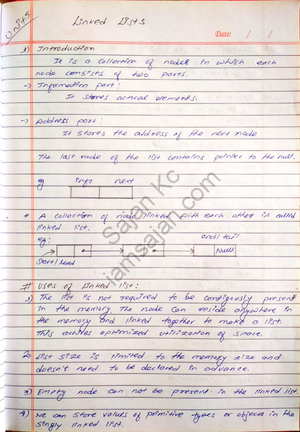 Unit-5
Linked Lists
Date: / /
1) Introduction
It is a collection of nodes in which each
node consists of two parts.
-> Information part:
It stores actual elements.
-> Address part:
It stores the address of the next node
The last node of the list contains pointer to the null.
eg info next
* A collection of node linked with each other is called
linked list.
eg: end/tail
NULL
Start/Head
# Uses of Linked list:
1) The list is not required to be contiguously present
in the memory. The node can reside anywhere in
the memory and linked together to make a list.
This achieves optimized utilization of space.
2) List size is limited to the memory size and
doesn't need to be declared in advance.
3) Empty node can not be present in the linked list.
4) We can store values of primitive types or objects in the
singly linked list.
Sajan Kc
iamsajan.com